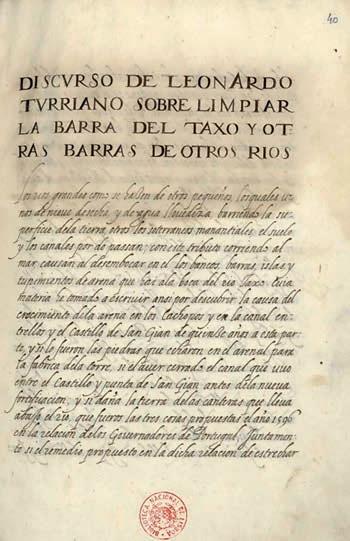 40
DISCVRSO DE LEONARDO
TVRRIANO SOBRE LIMPIAR
LA BARRA DEL TAXO Y OT
RAS BARRAS DE OTROS RIOS
Los rios grandes como se hazen de otros pequeños, los quales u
nos de nieue deshecha, y de agua llouediza, barriendo la su
perficie dela tierra, otros los soterraneos manantiales, el suelo
y los canales por do passan; con este tributo corriendo al
mar, causan al desembocar en el los bancos, barras, islas, y
rupimientos de arena que haz ala boca del rio Taxo. Cuia
materia he tomado a escriuir aqui por descubrir la causa del
crecimiento dela arena en los Cachopos y en la canal en-
trellos y el Castillo de San Gian de quinse años a esta par
te, y si lo fueron las piedras que echaron en el arenal para
la fabrica dela torre, si el auer cerrado el canal que uuo
entre el Castillo y punta de San Gian antes dela nueua
fortificacion, y si daña la tierra delas canteras que lleua
abaxo el rio, que fueron las tres cosas propuestas el año 1596
en la relacion delos Gouernadores de Portugal, Juntamen
te si el remedio propuesto en la dicha relacion de estrechar
BIBLIOTECA NACIONAL DE LISBOA